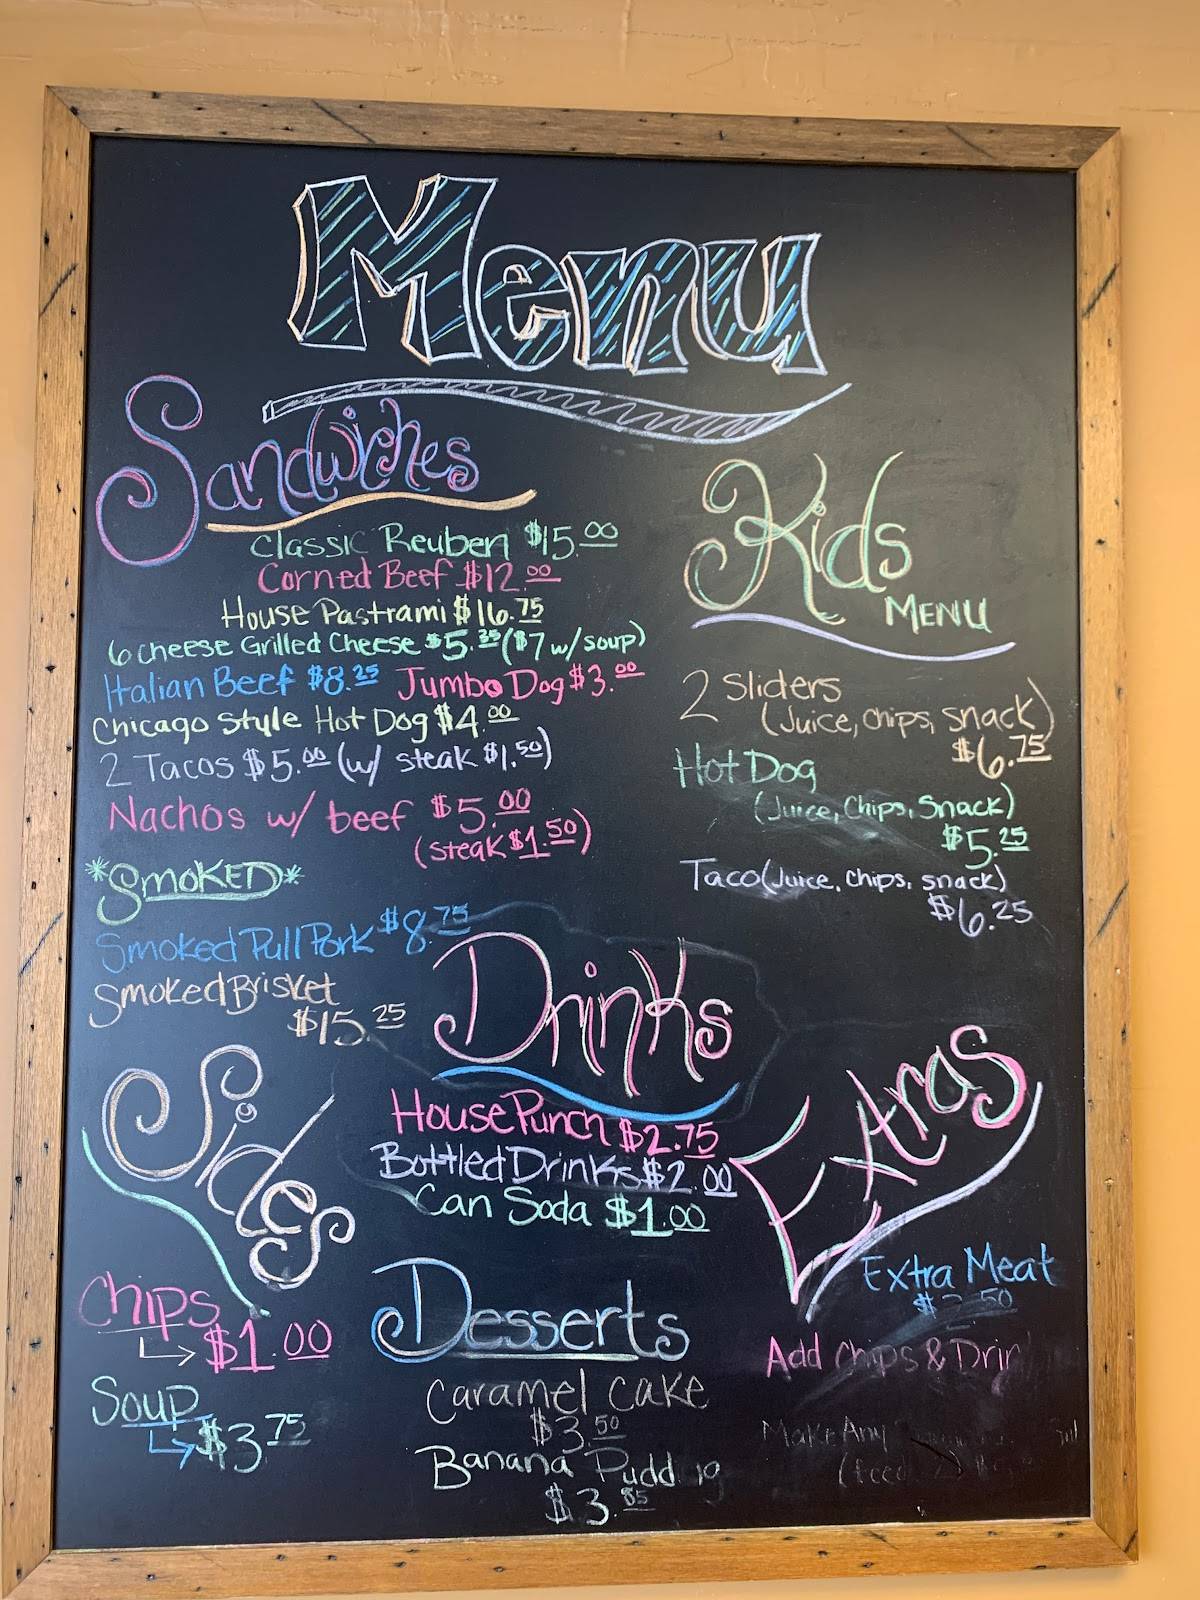 Menu
Sandwiches
Classic Reuben $15.00
Corned Beef $12.00
House Pastrami $16.75
6 cheese Grilled Cheese $5.25 ($7 w/soup)
Italian Beef $8.25 Jumbo Dog $3.00
Chicago Style Hot Dog $4.00
2 Tacos $5.00 (w/ steak $1.50)
Nachos w/ beef $5.00
(steak $1.50)
*Smoked*
Smoked Pull Pork $8.75
Smoked Brisket
$15.25
Kids
Menu
2 Sliders
(Juice, chips, snack)
$6.75
Hot Dog
(Juice, Chips, Snack)
$5.25
Taco (Juice, chips, snack)
$6.25
Drinks
House Punch $2.75
Bottled Drinks $2.00
Can Soda $1.00
Sides
Chips
$1.00
Soup
$3.75
Desserts
Caramel Cake
$3.50
Banana Pudd g
$3.85
Extras
Extra Meat
Add Chips & Drin
Make Any